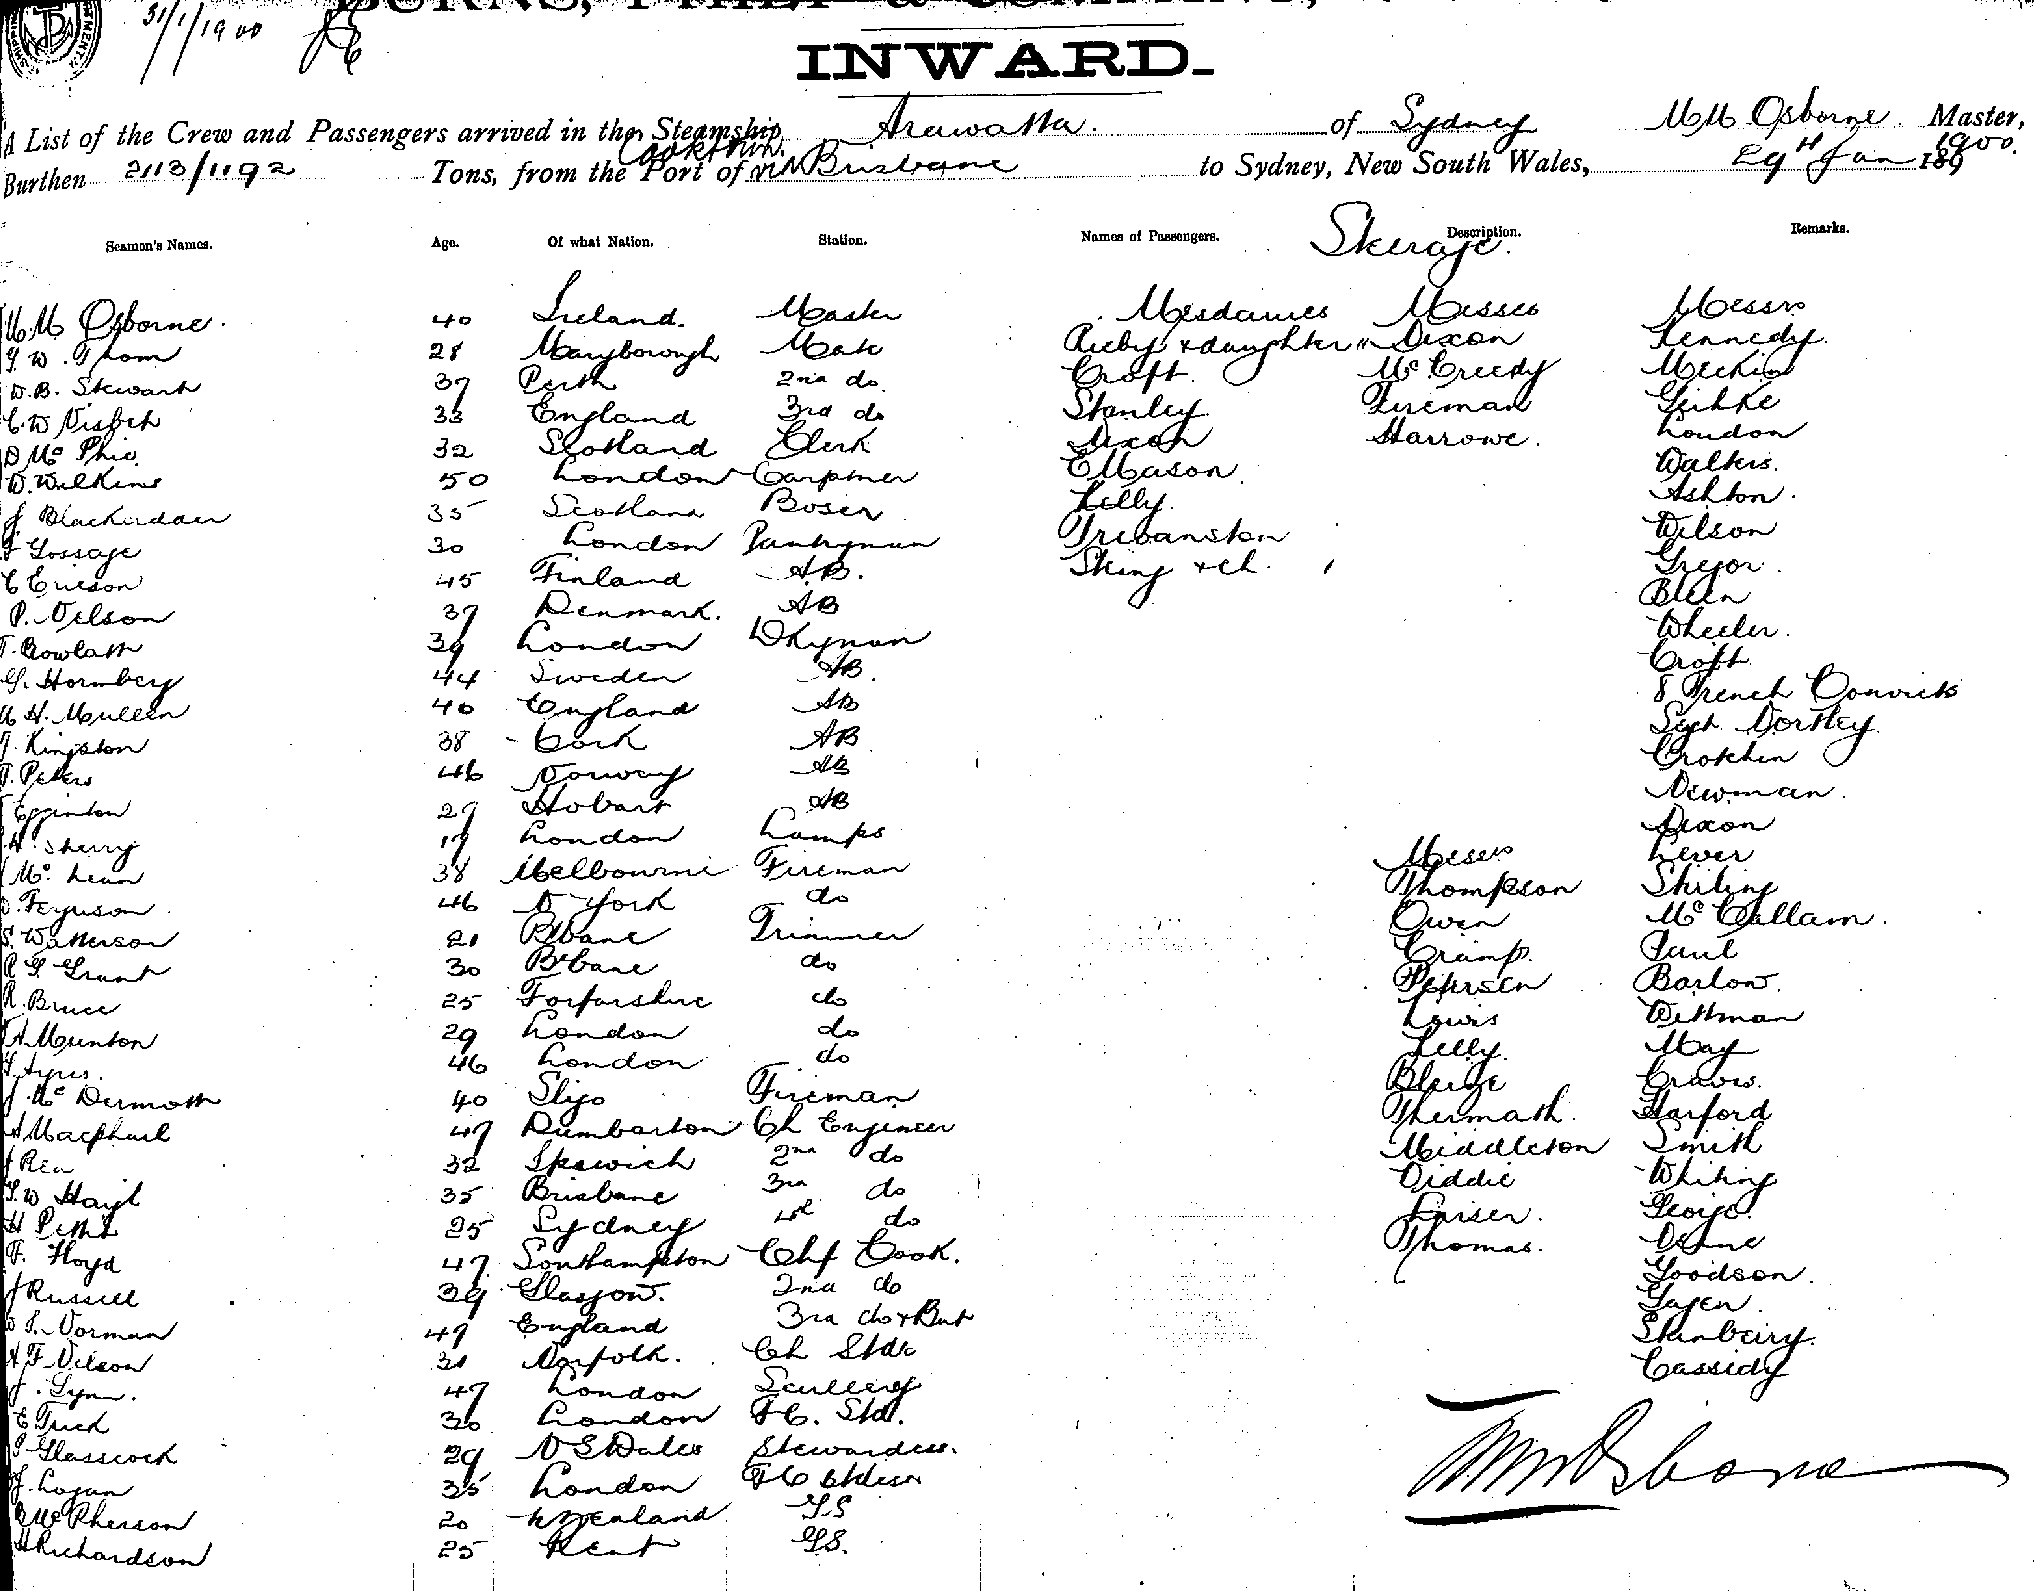 31/1/1900
BURNS, PHILP & COMPANY,
INWARD.
A List of the Crew and Passengers arrived in the Steamship Arawatta. of Sydney M M Osborne. Master,
Burthen 2113/1192 Tons, from the Port of Cooktown via Brisbane to Sydney, New South Wales, 29th Jan 189 1900.
Seamen's Names. Age. Of what Nation. Station. Names of Passengers. Description. Remarks.
Steerage.
M M Osborne. 40 Ireland. Master Mesdames Misses Messrs
T. W. Thom 28 Maryborough Mate & daughter Dixon Kennedy.
D. B. Stewart 37 Perth 2nd do. Croft. McCreedy Meckin
C. W Nisbet 33 England 3rd do Stanley Fireman
D Mc Phie. 32 Scotland Clerk Dixon Harrowe. London
W. Wilkins 50 London Carpntner E Mason Walters.
J Blackadder 35 Scotland Bosen Kelly. Ashton.
Gossage 30 London Pantryman Wilson
C Ericson 45 Finland AB. & ch. Gregor.
P. Nelson 37 Denmark. AB
T. 39 London Dkyman Wheeler.
G. Hornberg 44 Sweden AB. Croft
M H. Mullen 40 England AB 8 French Convicts
J. Kingston 38 Cork AB Sergt.
T. Peters 46 Norway AB
Egginton 29 Hobart AB Newman.
H. Sherry 19 London Lamps Dixon
Mc Lean 38 Melbourne Fireman Messrs Lever
D. Ferguson 46 N York do Thompson Stirling
S. Watterson 21 Bbane Trimmer Owen McCallam.
R G Grant 30 Bbane do Cramp. Paul
R. Bruce 25 Forfarshire do Petersen Barlow.
A Munton 29 London do Lewis Wittman
T. Ayres. 46 London do Lelly. May
J. Mc Dermott 40 Sligo Fireman
A Macphail 47 Dumbarton Ch Engineer Harford
J Rea 32 Ipswich 2nd do Middleton Smith
T. W Hayl 35 Brisbane 3rd do Diddie Whiting
H Pettit 25 Sydney 4th do Larsen. George.
F. Floyd 47 Southampton Chf Cook. Thomas.
J Russell 39 Glasgow. 2nd do Goodson.
Norman 49 England 3rd do & But
A F Nelson 31 Norfolk. Ch Stdr
J. Lynn. 47 London Scullery Cassidy
E Trick 30 London F C. Std.
Glasscock 29 N S Wales Stewardess.
J. Logan 35 London
McPherson 20 N Zealand G.S
H Richardson 25 Kent GS.
M M Osborne